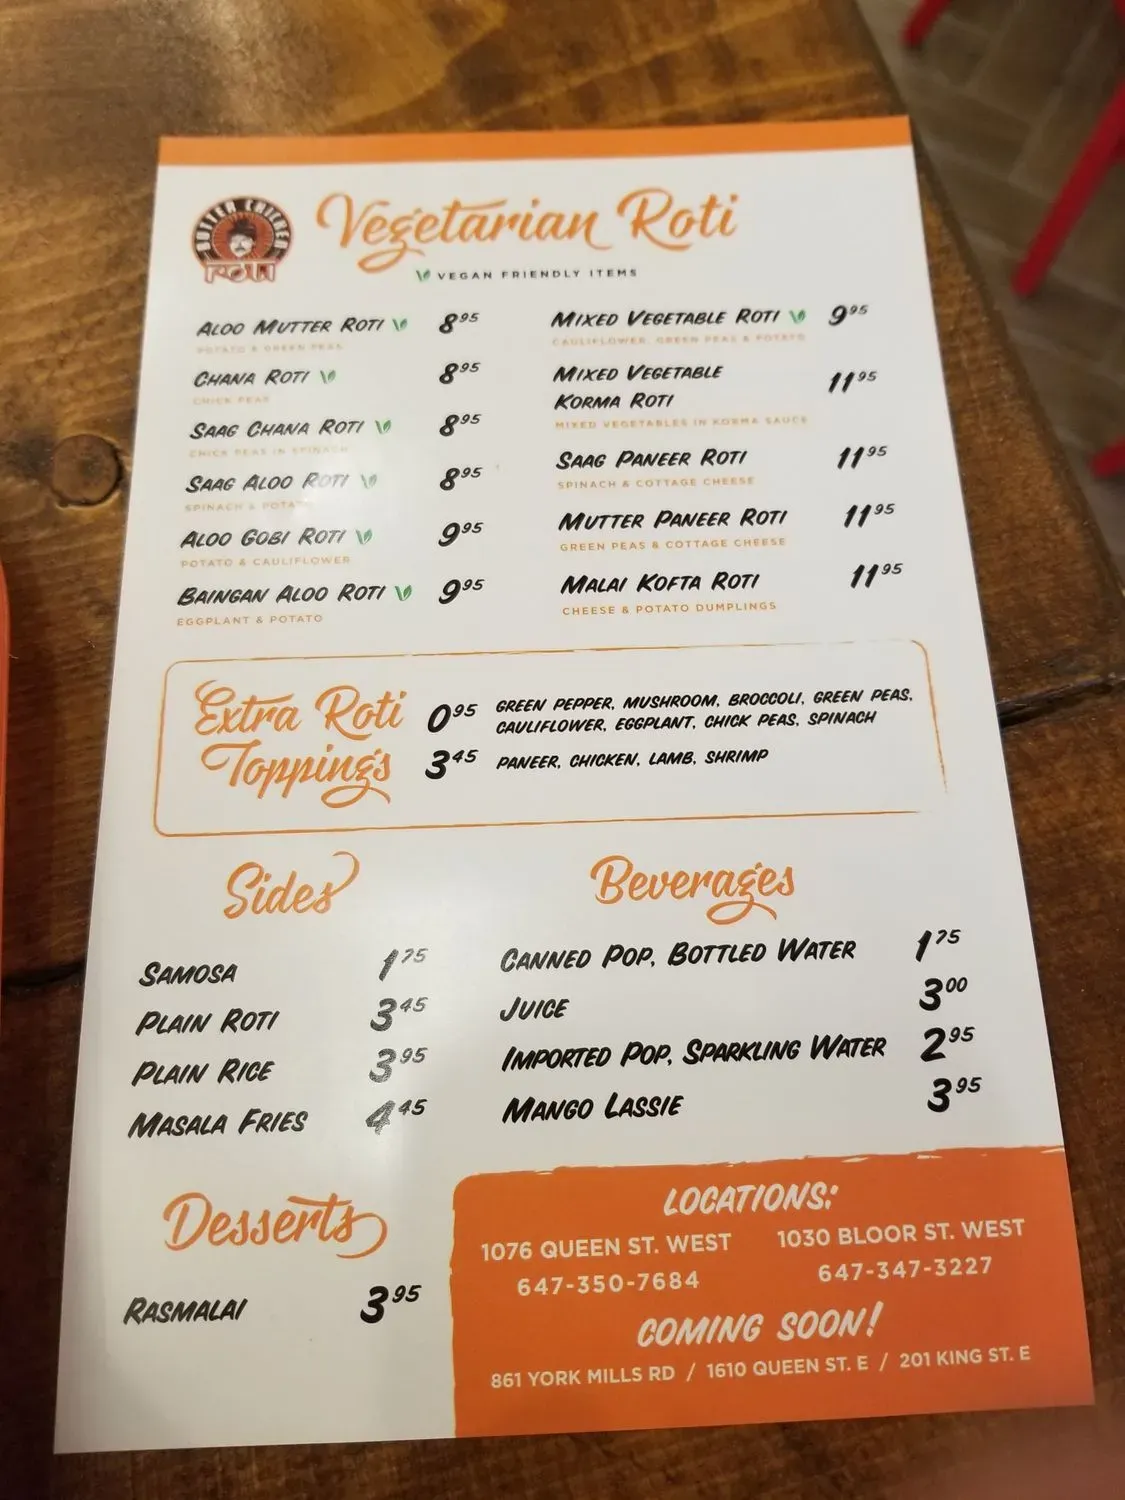 BUTTER CHICKEN
ROTI
Vegetarian Roti
VEGAN FRIENDLY ITEMS
ALOO MUTTER ROTI 8.95
POTATO & GREEN PEAS
CHANA ROTI 8.95
CHICK PEAS
SAAG CHANA ROTI 8.95
CHICK PEAS IN SPINACH
SAAG ALOO ROTI 8.95
SPINACH & POTATO
ALOO GOBI ROTI 9.95
POTATO & CAULIFLOWER
BAINGAN ALOO ROTI 9.95
EGGPLANT & POTATO
MIXED VEGETABLE ROTI 9.95
CAULIFLOWER, GREEN PEAS & POTATO
MIXED VEGETABLE
KORMA ROTI 11.95
MIXED VEGETABLES IN KORMA SAUCE
SAAG PANEER ROTI 11.95
SPINACH & COTTAGE CHEESE
MUTTER PANEER ROTI 11.95
GREEN PEAS & COTTAGE CHEESE
MALAI KOFTA ROTI 11.95
CHEESE & POTATO DUMPLINGS
Extra Roti
Toppings
0.95 GREEN PEPPER, MUSHROOM, BROCCOLI, GREEN PEAS,
CAULIFLOWER, EGGPLANT, CHICK PEAS, SPINACH
3.45 PANEER, CHICKEN, LAMB, SHRIMP
Sides
SAMOSA 1.75
PLAIN ROTI 3.45
PLAIN RICE 3.95
MASALA FRIES 4.45
Beverages
CANNED POP, BOTTLED WATER 1.75
JUICE 3.00
IMPORTED POP, SPARKLING WATER 2.95
MANGO LASSIE 3.95
Desserts
RASMALAI 3.95
LOCATIONS:
1076 QUEEN ST. WEST 1030 BLOOR ST. WEST
647-350-7684 647-347-3227
COMING SOON!
861 YORK MILLS RD / 1610 QUEEN ST. E / 201 KING ST. E